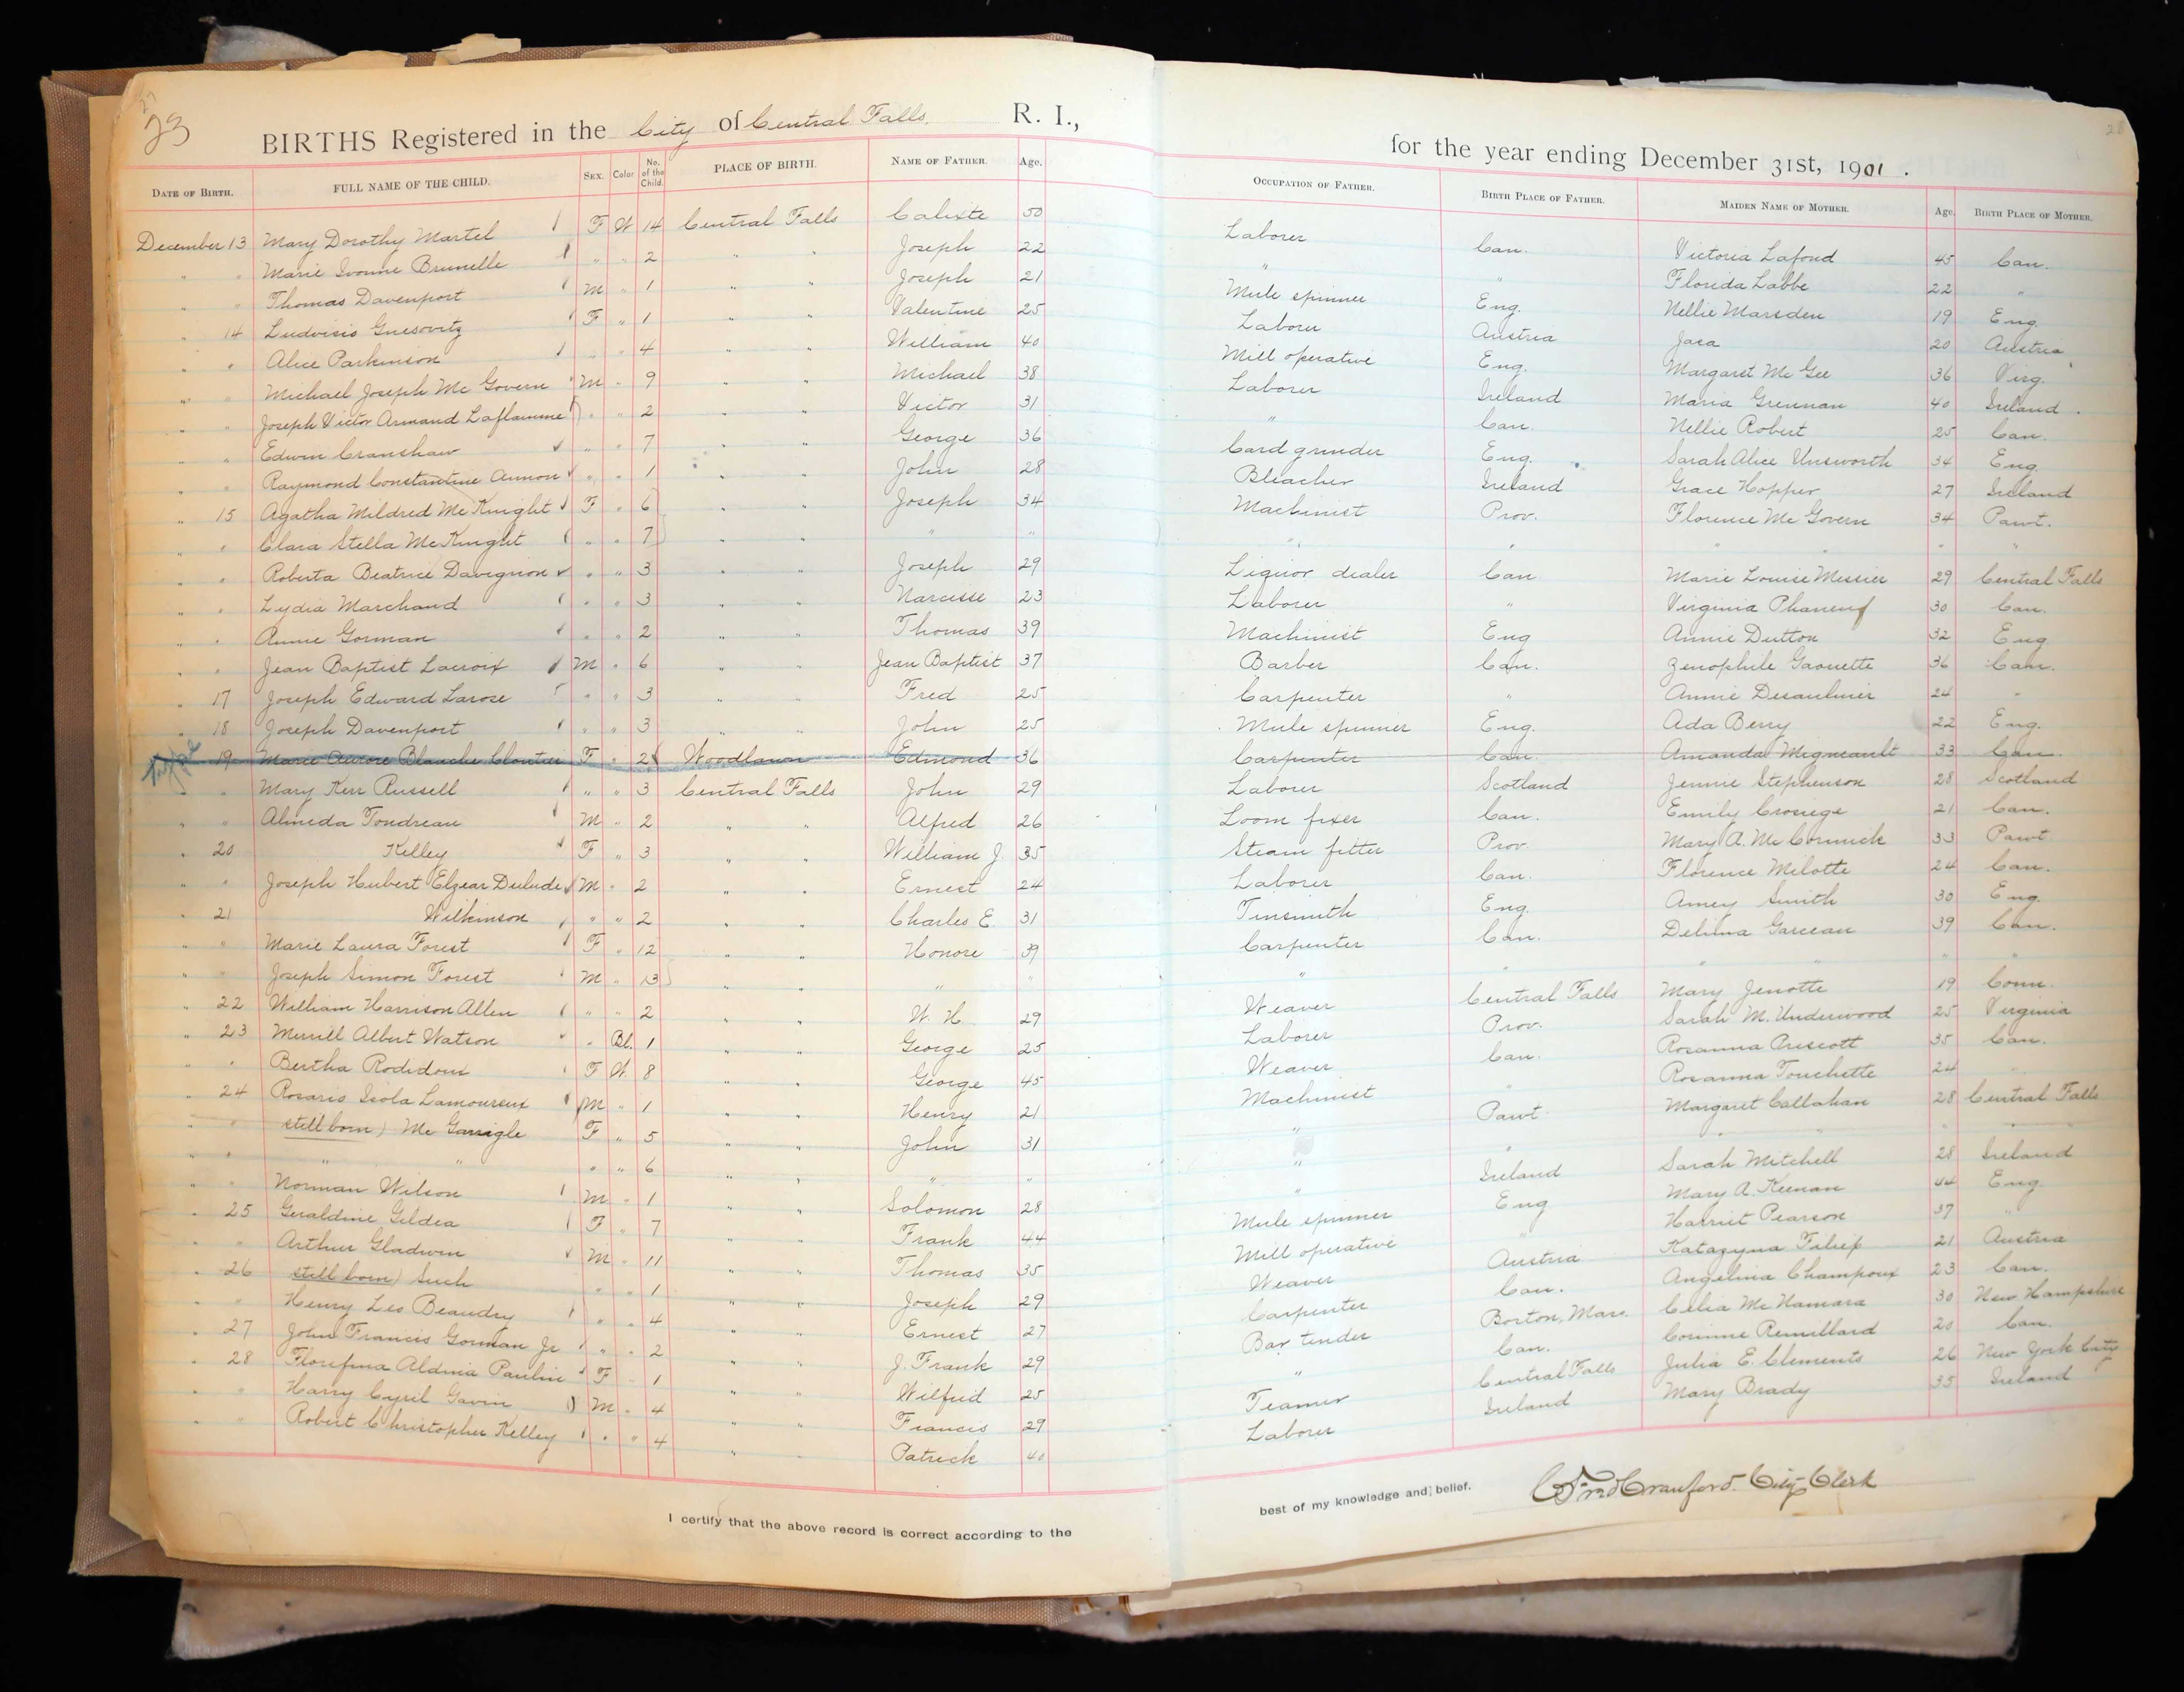 27
23
BIRTHS Registered in the City of Central Falls. R. I.,
DATE OF BIRTH. FULL NAME OF THE CHILD. SEX. Color No. of the Child. PLACE OF BIRTH. NAME OF FATHER. Age.
December 13 Mary Dorothy Martel F W 14 Central Falls Calixte 50
" " Marie Ivonne Brunelle " " 2 " " Joseph 22
" " Thomas Davenport M " 1 " " Joseph 21
" 14 Ludvisis Gnesovitz F " 1 " " Valentine 25
" " Alice Parkinson " " 4 " " William 40
" " Michael Joseph Mc Govern M " 9 " " Michael 38
" " Joseph Victor Armand Laflamme " " 2 " " Victor 31
" " Edwin Cranshaw " " 7 " " George 36
" " Raymond Constantine Annon " " 1 " " John 28
" 15 Agatha Mildred Mc Knight F " 6 " " Joseph 34
" " Clara Stella McKnight " " 7 " "
" " Roberta Beatrice Davignon " " 3 " " Joseph 29
" " Lydia Marchand " " 3 " " Narcisse 23
" " Annie Gorman " " 2 " " Thomas 39
" " Jean Baptist Lacroix M " 6 " " Jean Baptist 37
" 17 Joseph Edward Larose " " 3 " " Fred 25
" 18 Joseph Davenport " " 3 " " John 25
19 Marie Aurore Blanche Cloutier F " 2 Woodlawn Edmond 36
" " Mary Kerr Russell " " 3 Central Falls John 29
" " Almeda Tondreau M " 2 " " Alfred 26
" 20 Kelley F " 3 " " William J. 35
" " Joseph Hubert Elzear Dulude M " 2 " " Ernest 24
" 21 Wilkinson " " 2 " " Charles E. 31
" " Marie Laura Forest F " 12 " " Honore 39
" " Joseph Simon Forest M " 13 " " " "
" 22 William Harrison Allen " " 2 " " W. H. 29
" 23 Merrill Albert Watson " Bl. 1 " " George 25
" " Bertha Rodidoux F W. 8 " " George 45
" 24 Rosaris Isola Lamoureux M " 1 " " Henry 21
" " still born) Mc Garrigle F " 5 " " John 31
" " " " " " 6 " " " "
" " Norman Wilson M " 1 " " Solomon 28
" 25 Geraldine Gildea F " 7 " " Frank 44
" " Arthur Gladwin M " 11 " " Thomas 35
" 26 still born) Such " " 1 " " Joseph 29
" " Henry Leo Beaudry " " 4 " " Ernest 27
" 27 John Francis Gorman Jr " " 2 " " J. Frank 29
" 28 Florefina Aldina Paulin F " 1 " " Wilfrid 25
" " Harry Cyril Gavin M " 4 " " Francis 29
" " Robert Christopher Kelley " " 4 " " Patrick 40
I certify that the above record is correct according to the
28
for the year ending December 31st, 1901.
OCCUPATION OF FATHER. BIRTH PLACE OF FATHER. MAIDEN NAME OF MOTHER. Age. BIRTH PLACE OF MOTHER.
Laborer Can. Victoria Lafond 45 Can.
" " Florida Labbe 22 "
Mule spinner Eng. Nellie Marsden 19 Eng.
Laborer Austria Jasa 20 Austria
Mill operative Eng. Margaret Mc Gee 36 Virg.
Laborer Ireland Maria Grennan 40 Ireland.
" Can. Nellie Robert 25 Can.
Card grinder Eng. Sarah Alice Unsworth 34 Eng.
Bleacher Ireland Grace Hopper 27 Ireland
Machinist Prov. Florence Mc Govern 34 Pawt.
" " " " " "
Liquor dealer Can Marie Louise Messier 29 Central Falls
Laborer " Virginia Phaneuf 30 Can.
Machinist Eng Annie Dutton 32 Eng
Barber Can. Zenophile Gaouette 36 Can.
Carpenter " Annie Desaulnier 24 "
Mule spinner Eng. Ada Berry 22 Eng.
Carpenter Can. Amanda Migneault 33 Can.
Laborer Scotland Jennie Stephenson 28 Scotland
Loom fixer Can. Emily Crosiege 21 Can.
Steam fitter Prov. Mary A. Mc Cormick 33 Pawt
Laborer Can. Florence Milotte 24 Can.
Tinsmith Eng. Amey Smith 30 Eng.
Carpenter Can. Delima Garceau 39 Can.
" " " " " "
Weaver Central Falls Mary Jenotte 19 Conn.
Laborer Prov. Sarah M. Underwood 25 Virginia
Weaver Can. Rosanna Priscott 35 Can.
Machinist " Rosanna Touchette 24 "
" Pawt Margaret Callahan 28 Central Falls
" " " " " "
" Ireland Sarah Mitchell 28 Ireland
Mule spinner Eng Mary A. Keenan 44 Eng.
Mill operative " Harriet Pearson 37 "
Weaver Austria Katazyna Filip 21 Austria
Carpenter Can. Angelina Champoux 23 Can.
Bar tender Boston, Mass. Celia Mc Namara 30 New Hampshire
" Can. Corinne Remillard 20 Can.
Teamer Central Falls Julia E. Clements 26 New York City
Laborer Ireland Mary Brady 35 Ireland
best of my knowledge and belief. Crawford. City Clerk